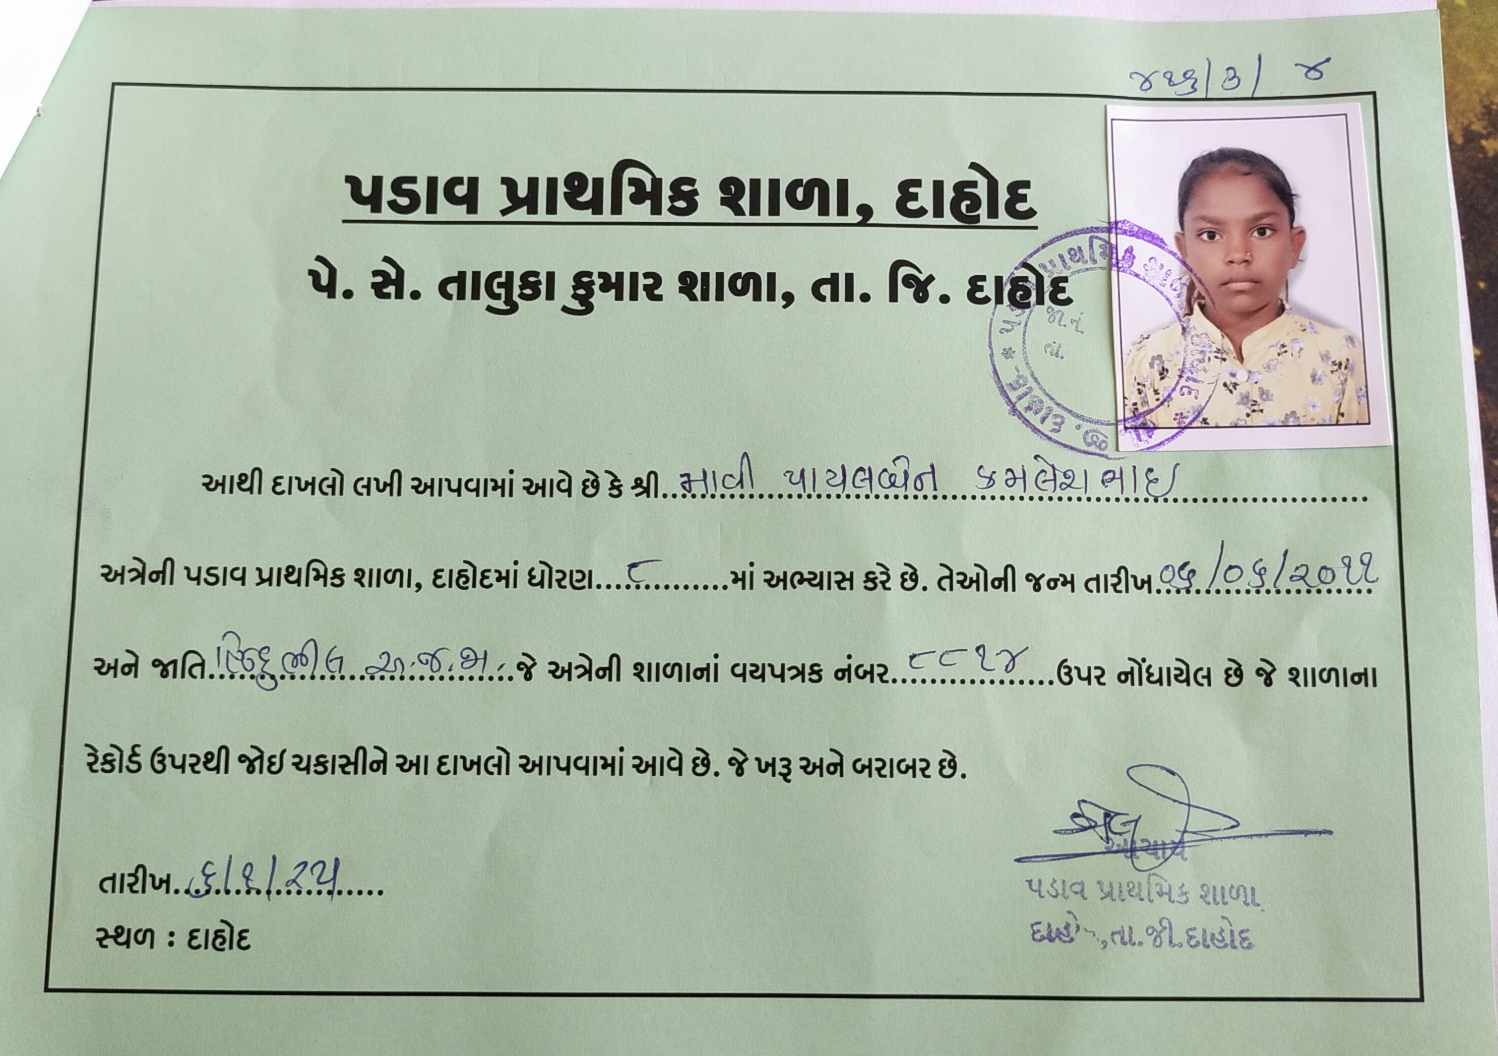 પડાવ પ્રાથમિક શાળા, દાહોદ
પે. સે. તાલુકા કુમાર શાળા, તા. જિ. દાહોદ
આથી દાખલો લખી આપવામાં આવે છે કે શ્રી..માવી પાયલબેન કમલેશભાઇ
અત્રેની પડાવ પ્રાથમિક શાળા, દાહોદમાં ધોરણ...૮...માં અભ્યાસ કરે છે. તેઓની જન્મ તારીખ.૦૬/૦૬/૨૦૧૧
અને જાતિ..હિન્દુ ભીલ અ.જ.જા...જે અત્રેની શાળાનાં વયપત્રક નંબર..૮૮૧૪...ઉપર નોંધાયેલ છે જે શાળાના
રેકોર્ડ ઉપરથી જોઈ ચકાસીને આ દાખલો આપવામાં આવે છે. જે ખરૂ અને બરાબર છે.
તારીખ..૬/૧/૨૫
સ્થળ : દાહોદ
આચાર્ય
પડાવ પ્રાથમિક શાળા
દાહોદ,તા.જી.દાહોદ